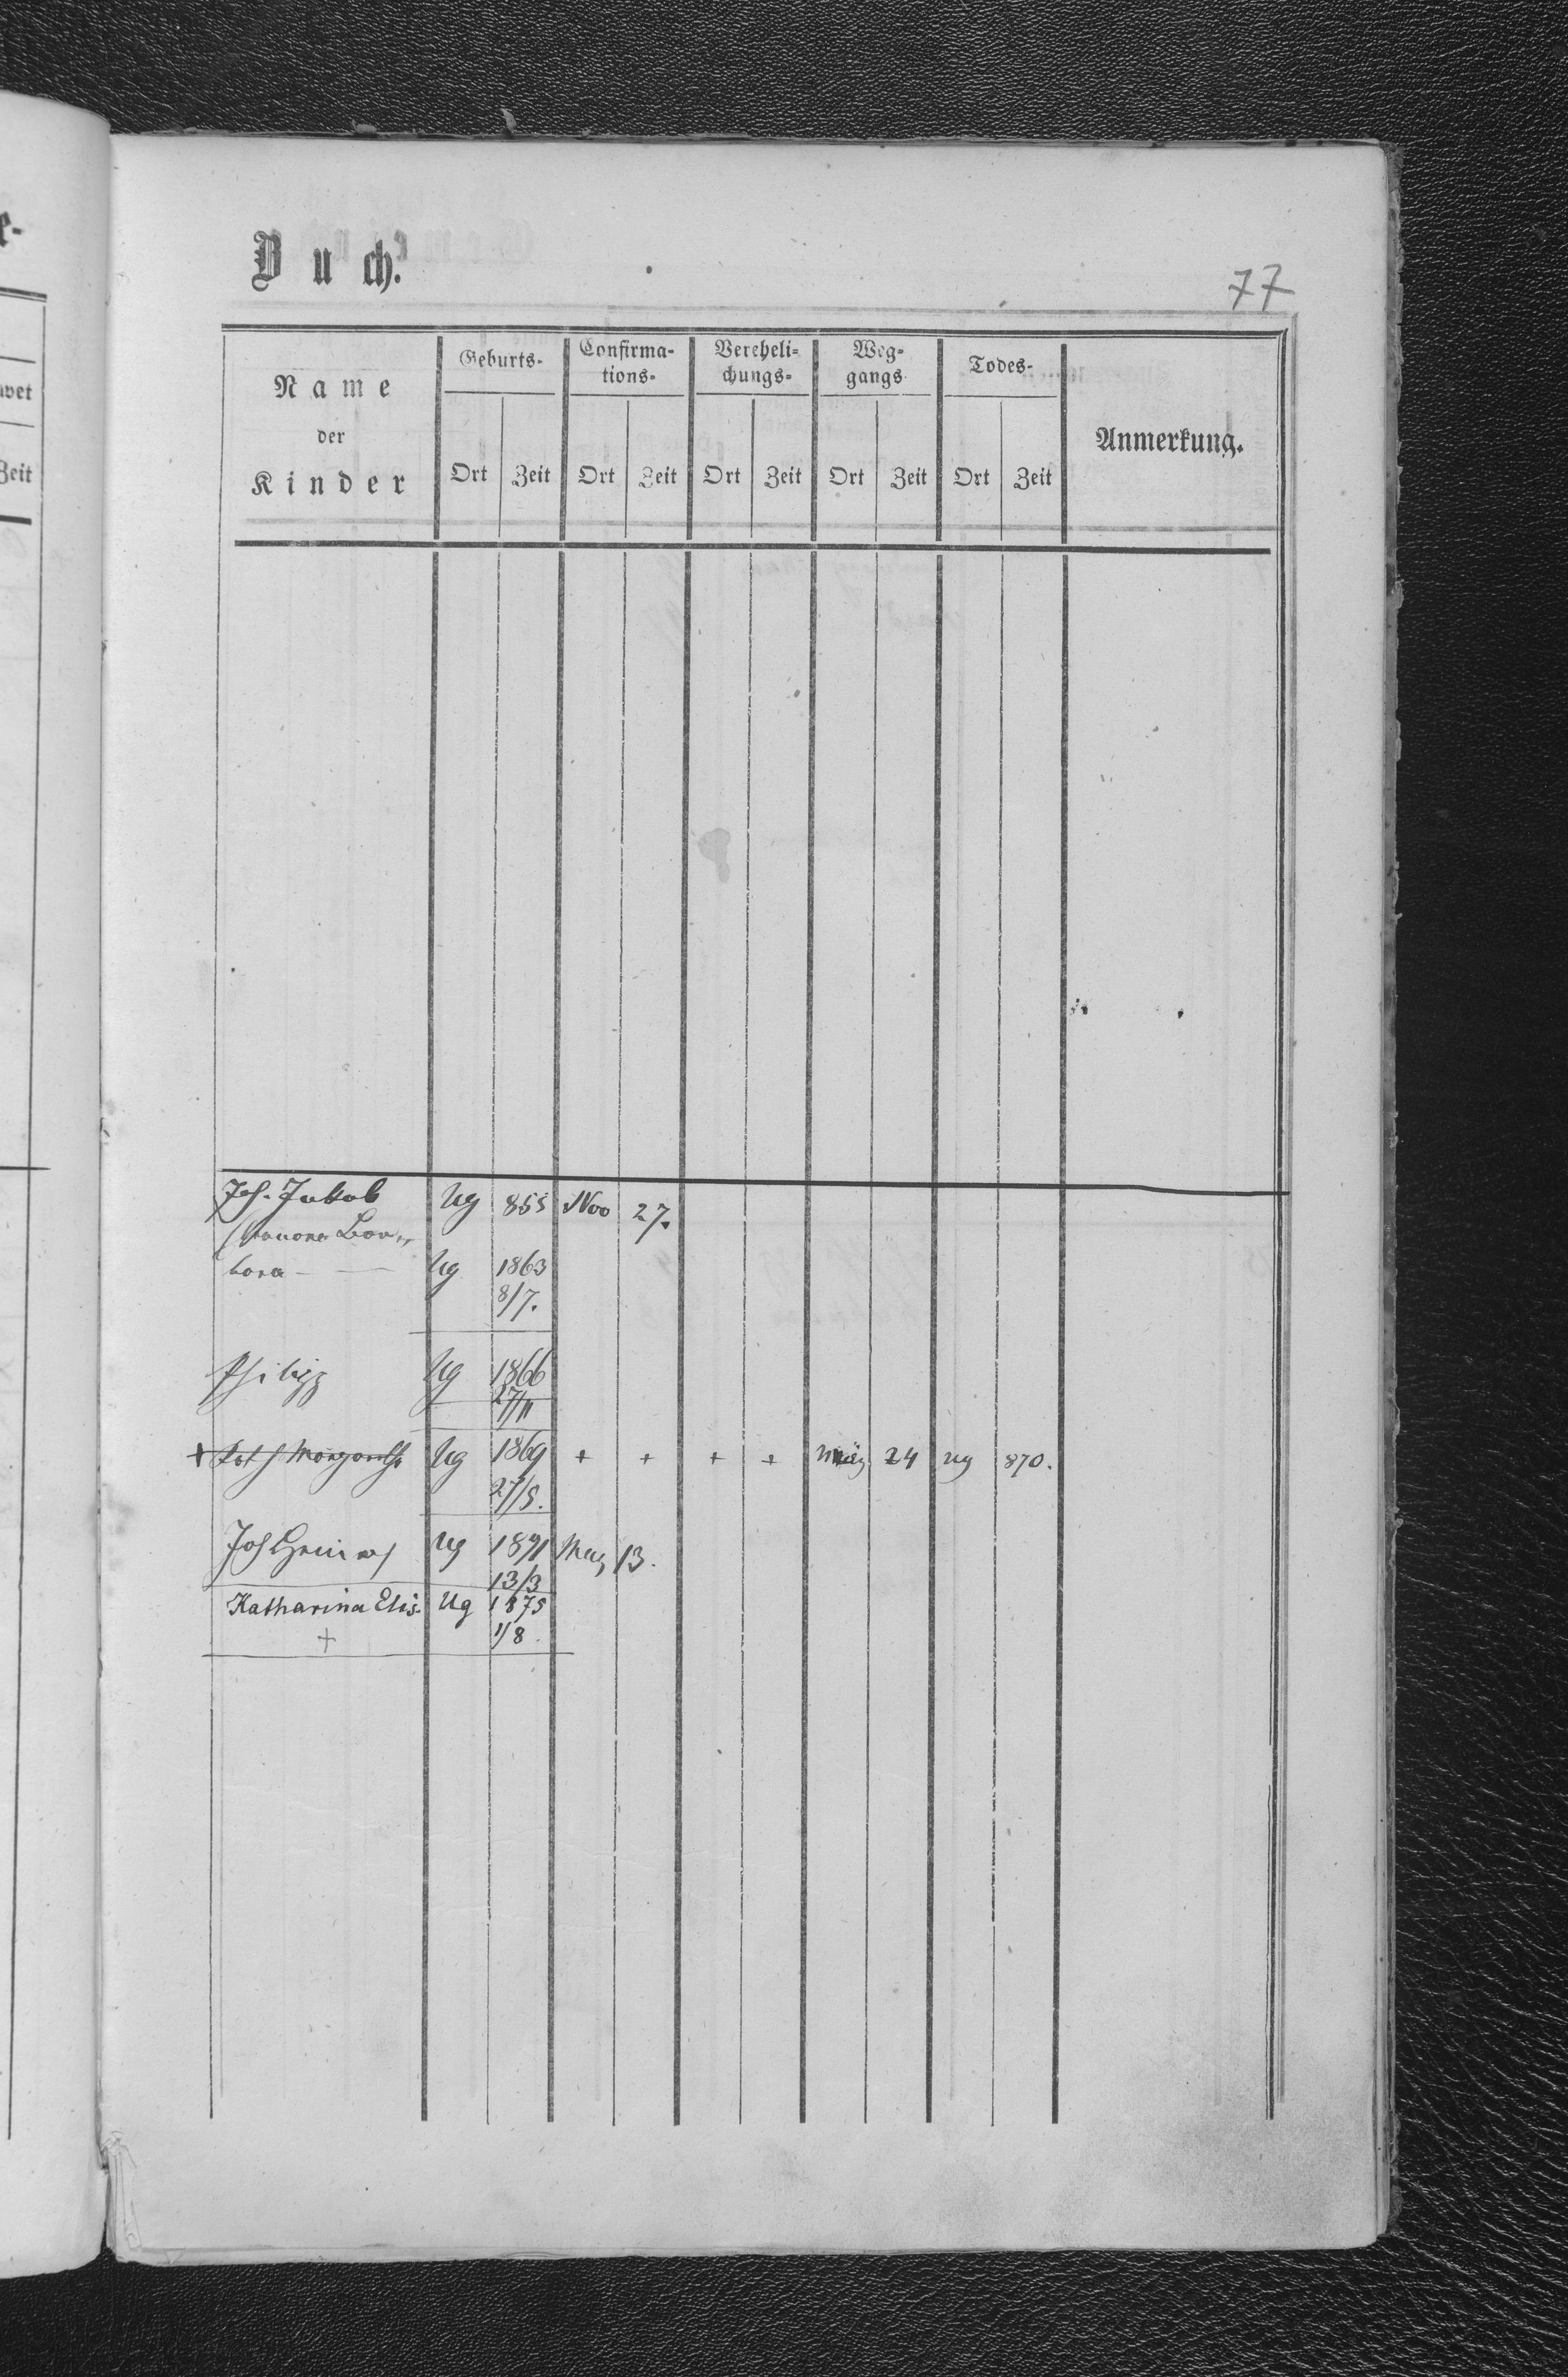 e-
Buch.
77
Name
der
Kinder
Geburts-
Confirma-
tions-
Vereheli-
chungs-
Weg-
gangs
Todes-
Anmerkung.
Ort Zeit Ort Zeit Ort Zeit Ort Zeit Ort Zeit
Zeit
Joh. Jakob Ug 855 Nov 27.
bara — Ug 1863
8/7.
Philipp Ug 1866
27/11
+ Kath Margareth Ug 1869 + + + + März 24 Ug 870.
27/5.
Joh Heinrich Ug 1871 März 13.
13/3
Katharina Elis. Ug 1875
+ 1/8.